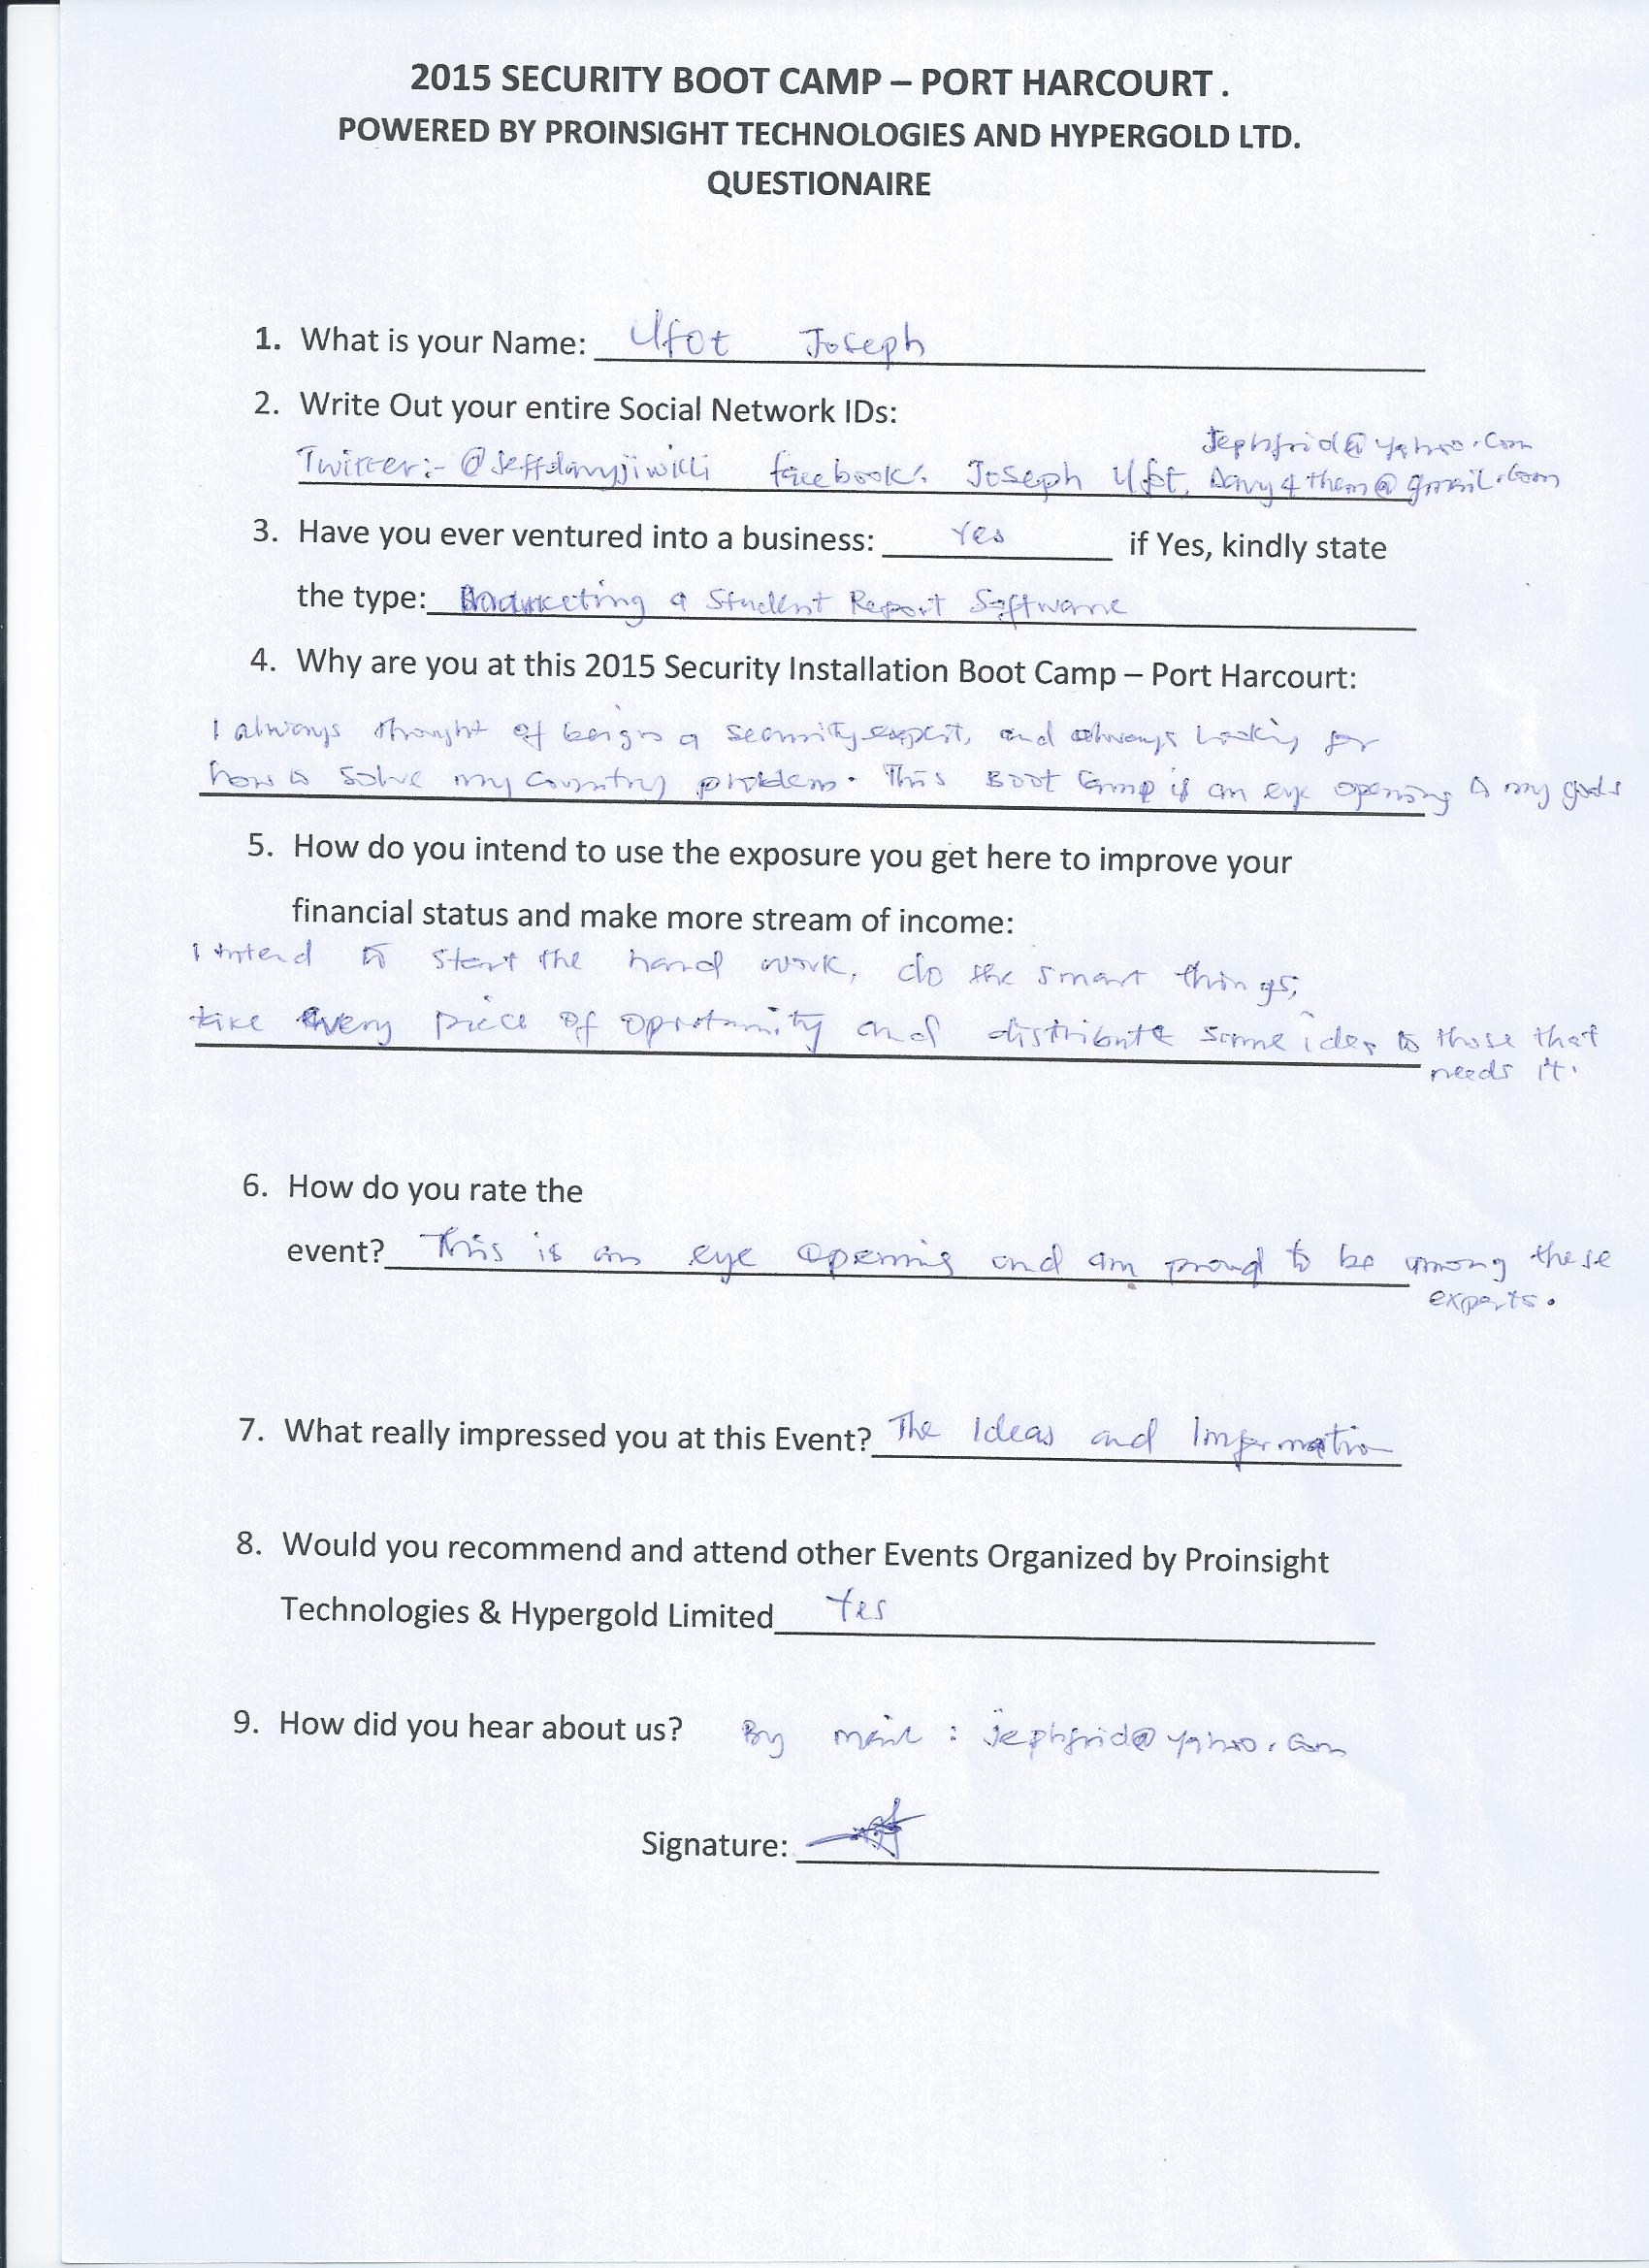 2015 SECURITY BOOT CAMP – PORT HARCOURT .
POWERED BY PROINSIGHT TECHNOLOGIES AND HYPERGOLD LTD.
QUESTIONAIRE
1. What is your Name: Ufot Joseph
2. Write Out your entire Social Network IDs:
Jephfrid@yahoo.com
Twitter:- facebook: Joseph Ufot, Davy4them@gmail.com
3. Have you ever ventured into a business: Yes if Yes, kindly state
the type: Marketing a Student Report Software
4. Why are you at this 2015 Security Installation Boot Camp – Port Harcourt:
I always thought of a security expert, and always looking for
how to solve my country problem. This Boot Camp is an eye opening to my
5. How do you intend to use the exposure you get here to improve your
financial status and make more stream of income:
I intend to start the hard work, do the smart things,
take every piece of and distribute some idea to those that
needs it.
6. How do you rate the
event? This is an eye opening and am proud to be among these
experts.
7. What really impressed you at this Event? The Ideas and Information
8. Would you recommend and attend other Events Organized by Proinsight
Technologies & Hypergold Limited Yes
9. How did you hear about us? By mail : jephfrid@yahoo.com
Signature: